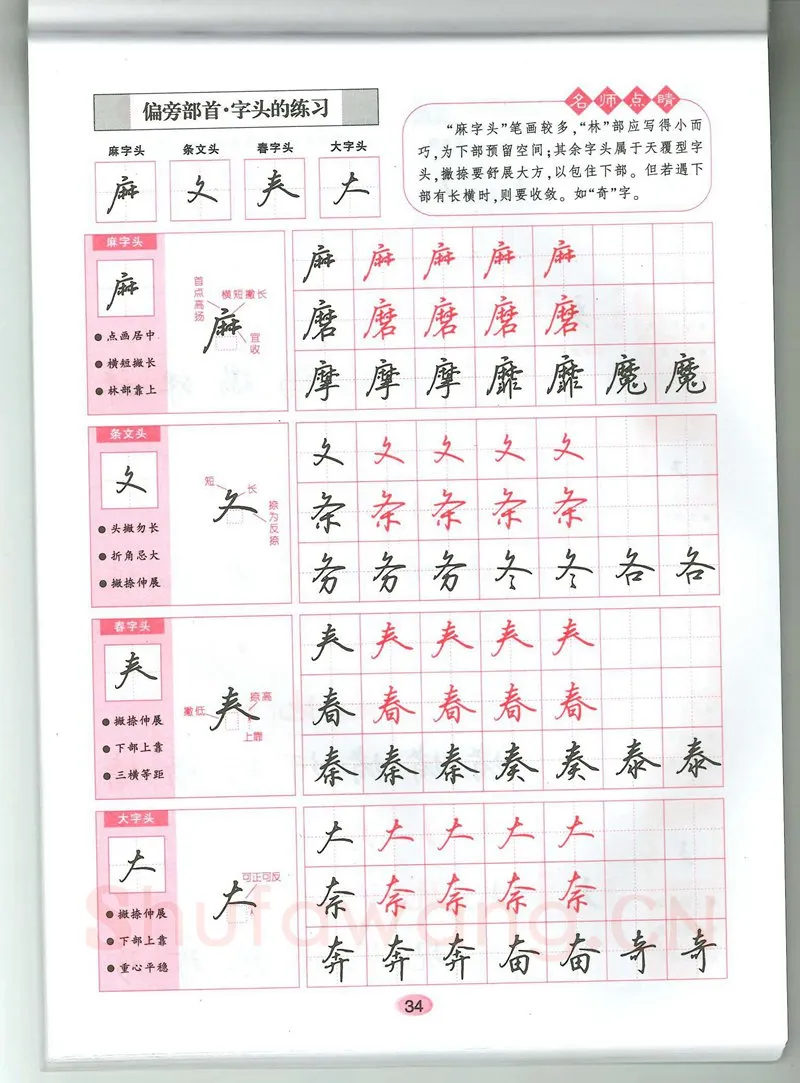 偏旁部首·字头的练习
名师点睛
“麻字头”笔画较多,“林”部应写得小而
巧,为下部预留空间;其余字头属于天覆型字
头,撇捺要舒展大方,以包住下部。但若遇下
部有长横时,则要收敛。如“奇”字。
麻字头 条文头 春字头 大字头
麻 夂 𡗗 大
麻字头
麻
点画居中
横短撇长
林部靠上
首点高扬
横短撇长
麻
宜收
麻 麻 麻 麻 麻
磨 磨 磨 磨 磨
摩 摩 摩 靡 靡 魔 魔
条文头
夂
头撇勿长
折角忌大
撇捺伸展
短
长
夂
捺为反捺
夂 夂 夂 夂 夂
条 条 条 条 条
务 务 务 冬 冬 各 各
春字头
𡗗
撇捺伸展
下部上靠
三横等距
撇低
捺高
𡗗
上靠
𡗗 𡗗 𡗗 𡗗 𡗗
春 春 春 春 春
秦 秦 秦 奏 奏 泰 泰
大字头
大
撇捺伸展
下部上靠
重心平稳
可正可反
大
大 大 大 大 大
奈 奈 奈 奈 奈
奔 奔 奔 奋 奋 奇 奇
Shufawang.CN
34